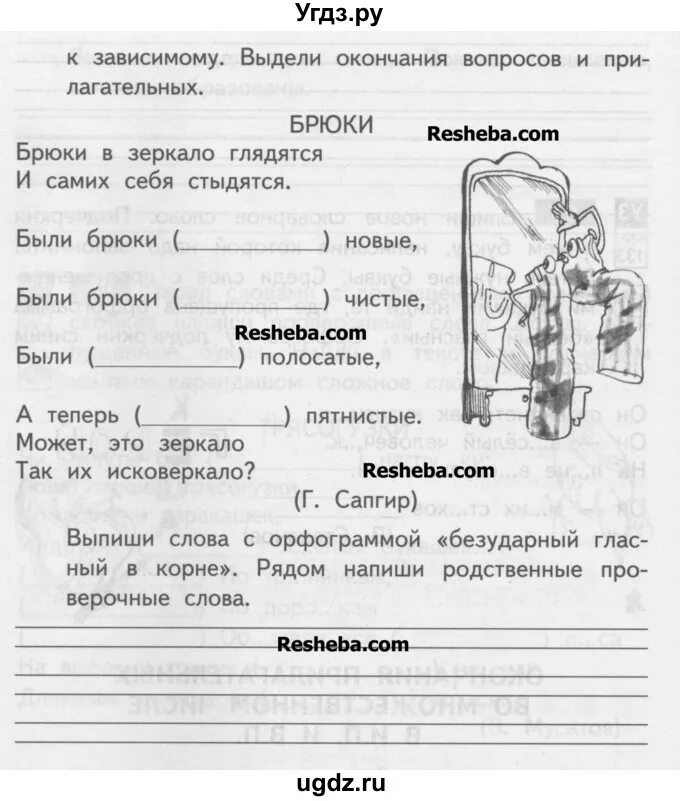 Угдз.ру
к зависимому. Выдели окончания вопросов и при-
лагательных.
БРЮКИ
Resheba.com
Брюки в зеркало глядятся
И самих себя стыдятся.
Были брюки (__________) новые,
Были брюки (__________) чистые,
Resheba.com
Были (__________) полосатые,
А теперь (__________) пятнистые.
Может, это зеркало
Так их исковеркало?
Resheba.com
(Г. Сапгир)
Выпиши слова с орфограммой «безударный глас-
ный в корне». Рядом напиши родственные про-
верочные слова.
Resheba.com
ОКОНЧАНИЯ ПРИЛАГАТЕЛЬНЫХ
ВО МНОЖЕСТВЕННОМ ЧИСЛЕ
В И.П. И В.П.
ugdz.ru